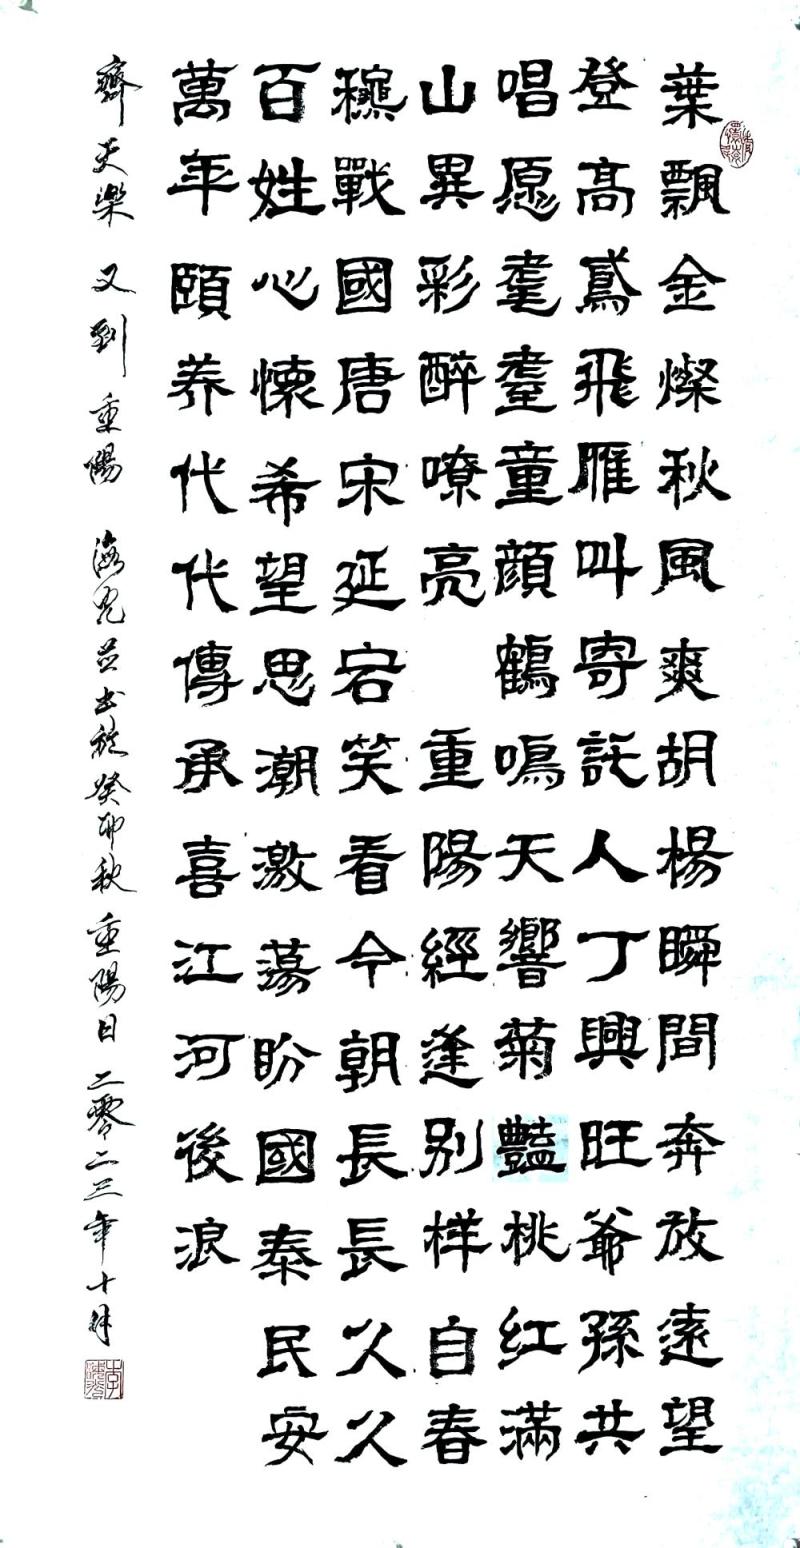 葉飄金燦秋風爽胡楊瞬間奔放遠望
登高鳶飛雁叫寄託人丁興旺爺孫共
唱愿耄耋童顏鶴鳴天響菊豔桃红滿
山異彩醉嘹亮 重陽經逢別样自春
龝戰國唐宋延宕笑看今朝長長久久
百姓心懷希望思潮激蕩盼國泰民安
萬年頤养代代傳承喜江河後浪
齊天樂 又到重陽 並书於癸卯秋重陽日二零二三年十月